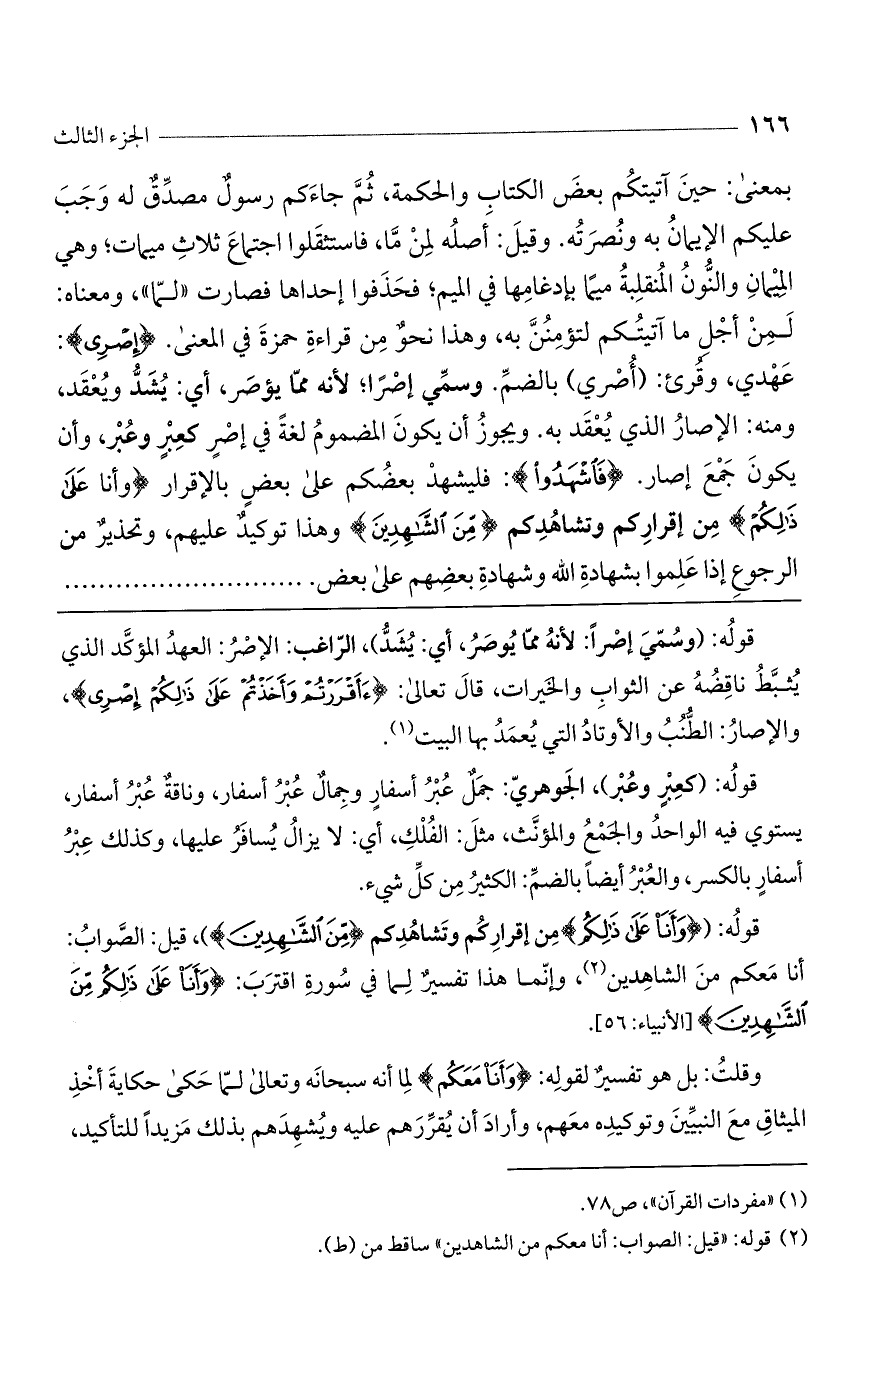 ١٦٦ ــــــــــــــــــــــــــــــــــــــــ الجزء الثالث
بمعنىٰ: حينَ آتيتكُم بعضَ الكتابِ والحكمة، ثُمَّ جاءَكم رسولٌ مصدِّقٌ له وَجَبَ
عليكم الإيمانُ به ونُصرَتُه. وقيلَ: أصلُه لِمنْ مَّا، فاستثقَلوا اجتماعَ ثلاثِ ميمات؛ وهي
المِيْمانِ والنُّونُ المُنقلِبةُ ميمًا بإدغامِها في الميم؛ فحَذَفوا إحداها فصارت «لـمّا»، ومعناه:
لَـمِنْ أجْلِ ما آتيتُـكم لتؤمِنُنَّ به، وهذا نحوٌ مِن قراءةِ حمزةَ في المعنىٰ. ﴿إِصْرِى﴾:
عَهْدي، وقُرئ: (أُصْري) بالضمِّ. وسمِّي إصْرًا؛ لأنه ممّا يؤصَر، أي: يُشَدُّ ويُعْقَد،
ومنه: الإصارُ الذي يُعْقَد به. ويجوزُ أن يكونَ المضمومُ لغةً في إصْرٍ كعِبْرٍ وعُبْر، وأن
يكونَ جَمْعَ إصار. ﴿فَٱشْهَدُوا۟﴾: فليشهدْ بعضُكم علىٰ بعضٍ بالإقرار ﴿وأنا عَلَىٰ
ذَٰلِكُمْ﴾ مِن إقرارِكم وتشاهُدِكم ﴿مِّنَ ٱلشَّٰهِدِينَ﴾ وهذا توكيدٌ عليهم، وتحذيرٌ من
الرجوعِ إذا عَلِموا بشهادةِ الله وشهادةِ بعضِهم علىٰ بعض. ............................
قولُه: (وسُمّيَ إصْراً: لأنهُ ممّا يُوصَرُ، أي: يُشَدُّ)، الرّاغب: الإصْرُ: العهدُ المؤكَّد الذي
يُثـبَّطُ ناقِضُهُ عن الثوابِ والخيرات، قالَ تعالىٰ: ﴿ءَأَقْرَرْتُمْ وَأَخَذْتُمْ عَلَىٰ ذَٰلِكُمْ إِصْرِى﴾،
والإصارُ: الطُّنُبُ والأوتادُ التي يُعمَدُ بها البيت(١).
قولُه: (كعِبْرٍ وعُبْر)، الجَوهريّ: جمَلٌ عُبْرُ أسفارٍ وجِمالٌ عُبْرُ أسفار، وناقةٌ عُبْرُ أسفار،
يستوي فيه الواحدُ والجَمْعُ والمؤنَّث، مثلَ: الفُلْكِ، أي: لا يزالُ يُسافَرُ عليها، وكذلك عِبْرُ
أسفارٍ بالكسر، والعُبْرُ أيضاً بالضمِّ: الكثيرُ مِن كلِّ شيء.
قولُه: (﴿وَأَنَا۠ عَلَىٰ ذَٰلِكُم﴾ مِن إقرارِكُم وتَشاهُدِكم ﴿مِّنَ ٱلشَّٰهِدِينَ﴾)، قيل: الصَّوابُ:
أنا مَعكم منَ الشاهِدين(٢)، وإنّمـا هذا تفسيرٌ لِـما في سُورةِ اقتربَ: ﴿وَأَنَا۠ عَلَىٰ ذَٰلِكُم مِّنَ
ٱلشَّٰهِدِينَ﴾ [الأنبياء: ٥٦].
وقلتُ: بل هو تفسيرٌ لقولِه: ﴿وَأَنَا۠ مَعَكُم﴾ لِما أنه سبحانَه وتعالىٰ لـمّا حَكىٰ حكايةَ أخْذِ
الميثاقِ معَ النبيِّينَ وتوكيدِه معَهم، وأرادَ أن يُقرِّرَهم عليه ويُشهِدَهم بذلك مَزيداً للتأكيد،
(١) «مفردات القرآن»، ص٧٨.
(٢) قوله: «قيل: الصواب: أنا معكم من الشاهدين» ساقط من (ط).